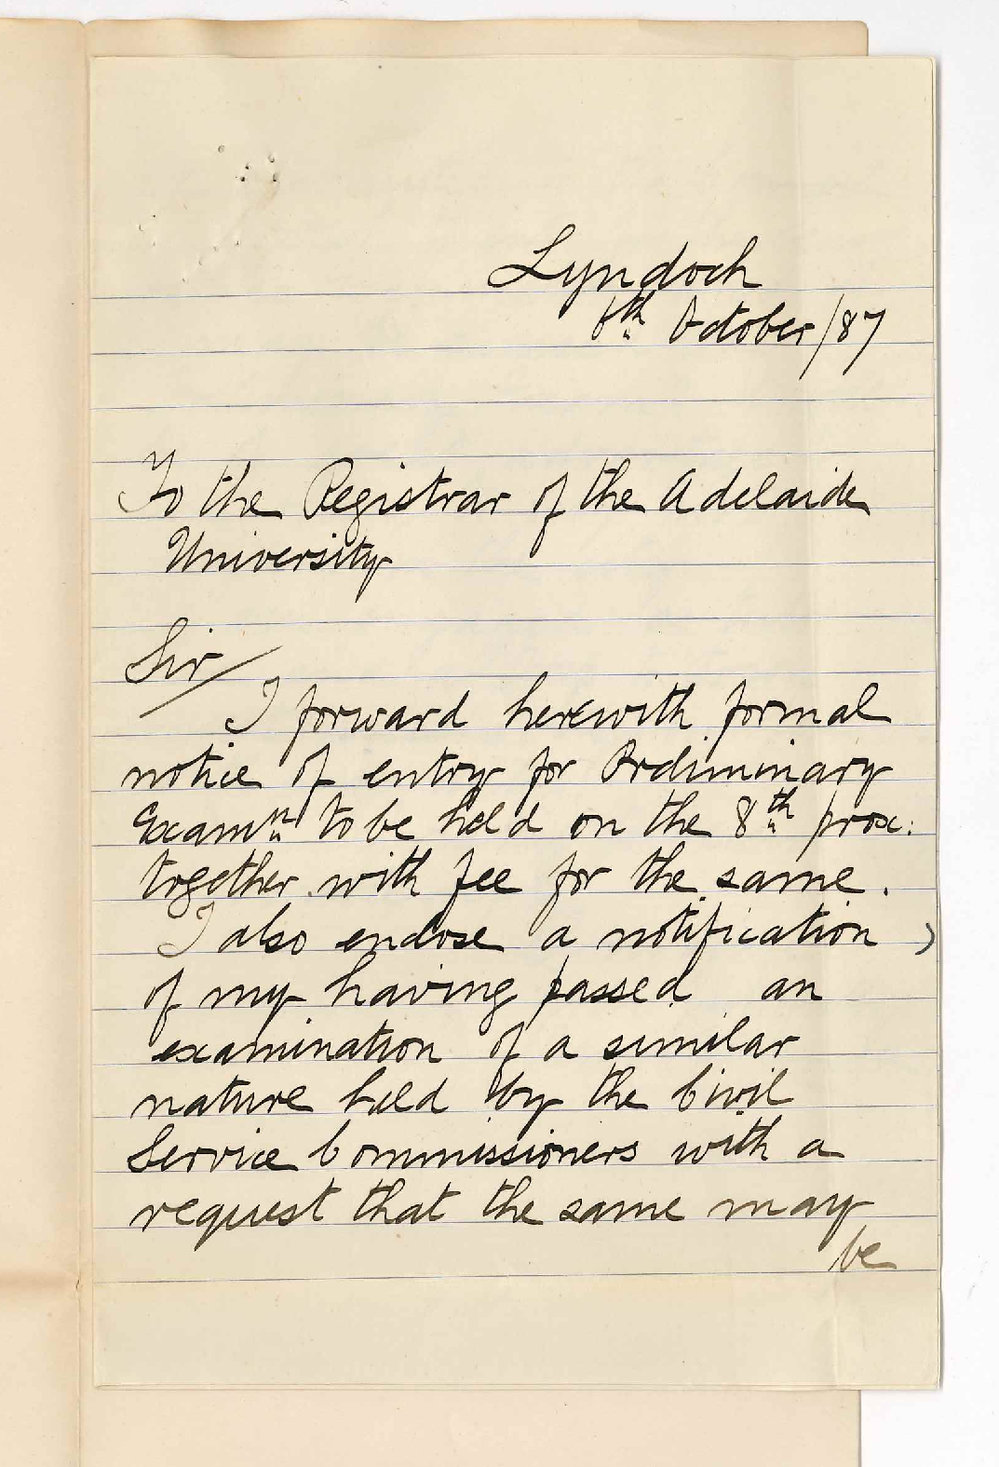 Lyndoch
6th October/87
To the Registrar of the Adelaide
University
Sir/
I forward herewith formal
notice of entry for Preliminary
Exam.n to be held on the 8th prox:
together with fee for the same.
I also enclose a notification
of my having passed an
examination of a similar
nature held by the Civil
Service Commissioners with a
request that the same may
be